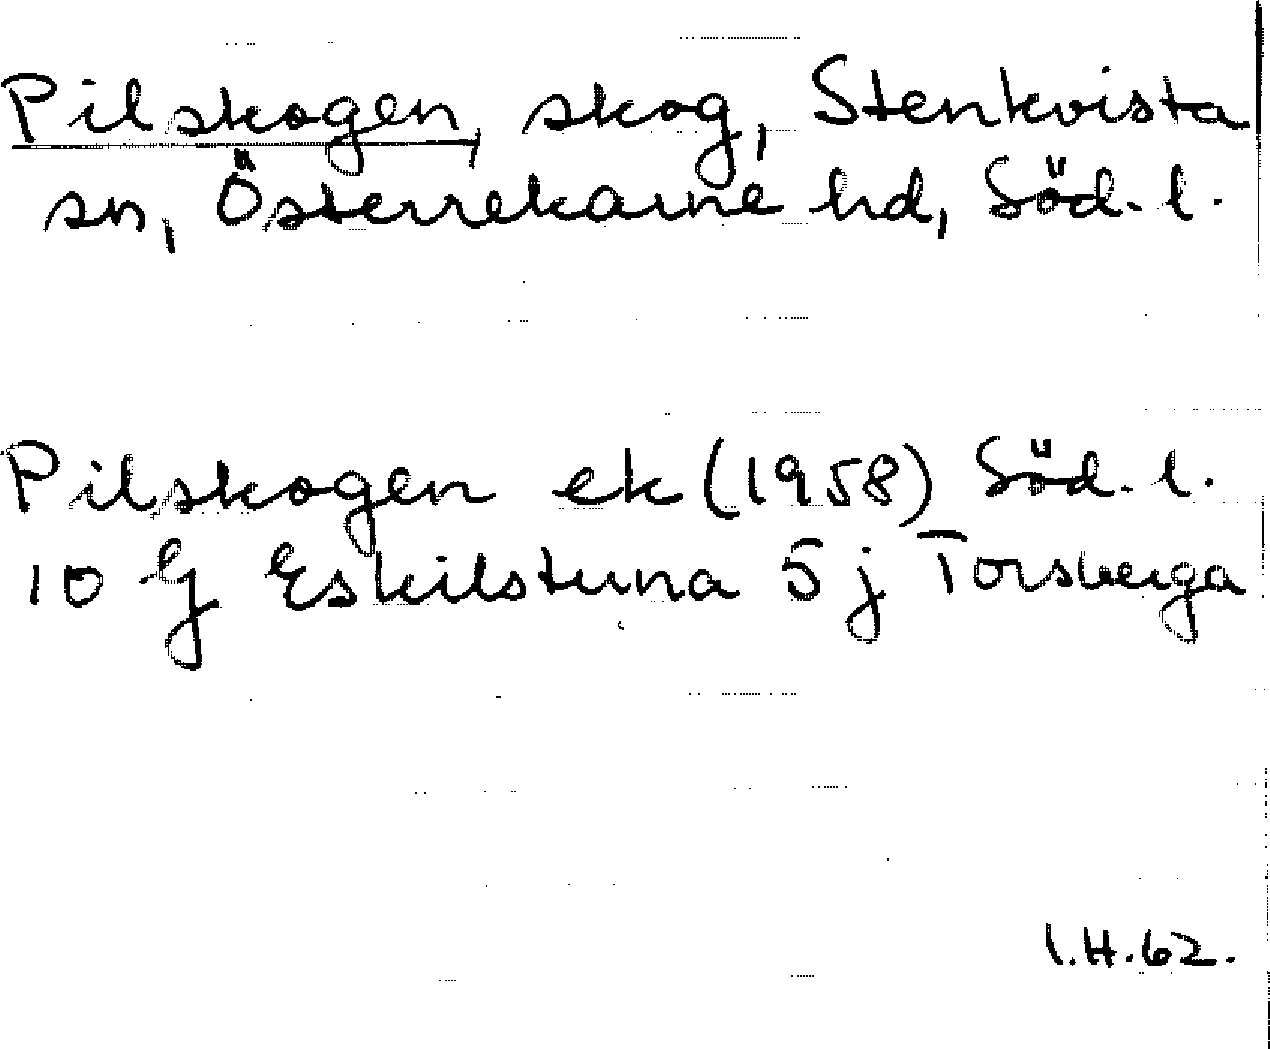 Pilskogen, skog, Stenkvista
sn, Österrekarne hd, Söd. l.
Pilskogen ek (1958) Söd. l.
10 G Eskilstuna 5 j Torsberga
I.H.62.